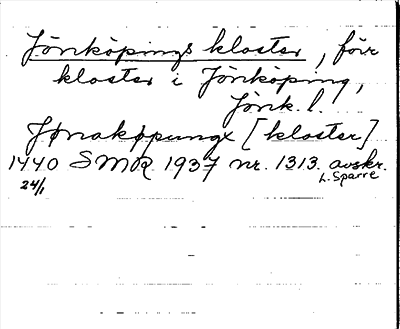 Jönköpings kloster, förr
kloster i Jönköping,
Jönk. l.
Jønakøpungx [kloster]
1440 SMR 1937 nr. 1313. avskr.
24/1 L. Sparre